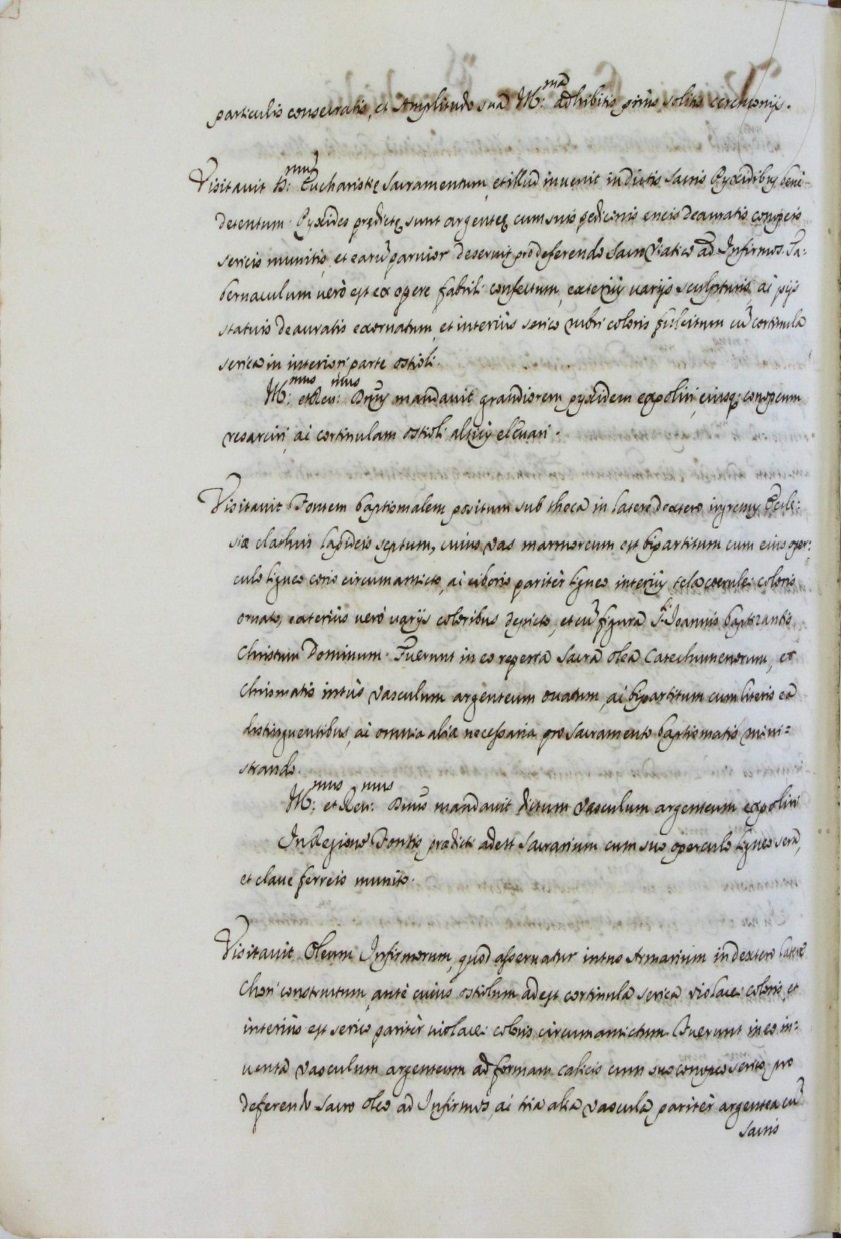 particulis consecratis, et Amplitudo sua Ill:ma adhibitis prius solitis ceremonijs.
Visitavit S:mum Eucharistię Sacramentum, et illud invenit in dictis sacris Pyxidibus beni-
detentum. Pyxides prędictę sunt argenteę cum suis
sericis munitis, et earũ parvior deservit pro deferendo sacro Viatico ad Infirmos. Ta-
bernaculum verò est ex opere fabrili confectum, exterius varijs sculpturis, ac pijs
statuis deauratis exornatum, et interius serico rubri coloris fulcitum cũ cortinula
serica in interiori parte ostioli.
Ill:mus et Rev:mus Dñus mandavit grandiorem pyxidem expoliri, eiusq; conopeum
resarciri, ac cortinulam ostioli altius elevari.
Visitavit Fontem baptismalem positum sub theca in latere dextero ingressus Eccle-
siæ clathris lapideis septum, cuius vas marmoreum est bipartitum cum eius oper-
culo ligneo corio circumamicto, ac ciborio pariter ligneo interius tela cœrulei coloris
ornato, exterius verò varijs coloribus depicto, et cũ figura S. Joannis baptizantis
Christum Dominum. Fuerunt in eo reperta Sacra olea Catechumenorum, et
Chrismatis intus vasculum argenteum ovatum, ac bipartitum cum literis ea
distinguentibus, ac omnia alia necessaria pro Sacramento baptismatis mini-
strando.
Ill:mus et Rev:mus Dñus mandavit dictum vasculum argenteum expoliri
In Regione Fontis prædicti adest sacrarium cum suo operculo ligneo sera,
et clave ferreis munito.
Visitavit Oleum Infirmorum, quod asservatur intus Armarium in dextero latere
Chori constructum, ante cuius ostiolum adest cortinula serica violacei coloris, et
interius est serico pariter violacei coloris circumamictum. Fuerunt in eo in-
venta vasculum argenteum ad formam calicis cum suo conopeo serico pro
deferendo sacro oleo ad Infirmos, ac tria alia vascula pariter argentea cũ
sacris